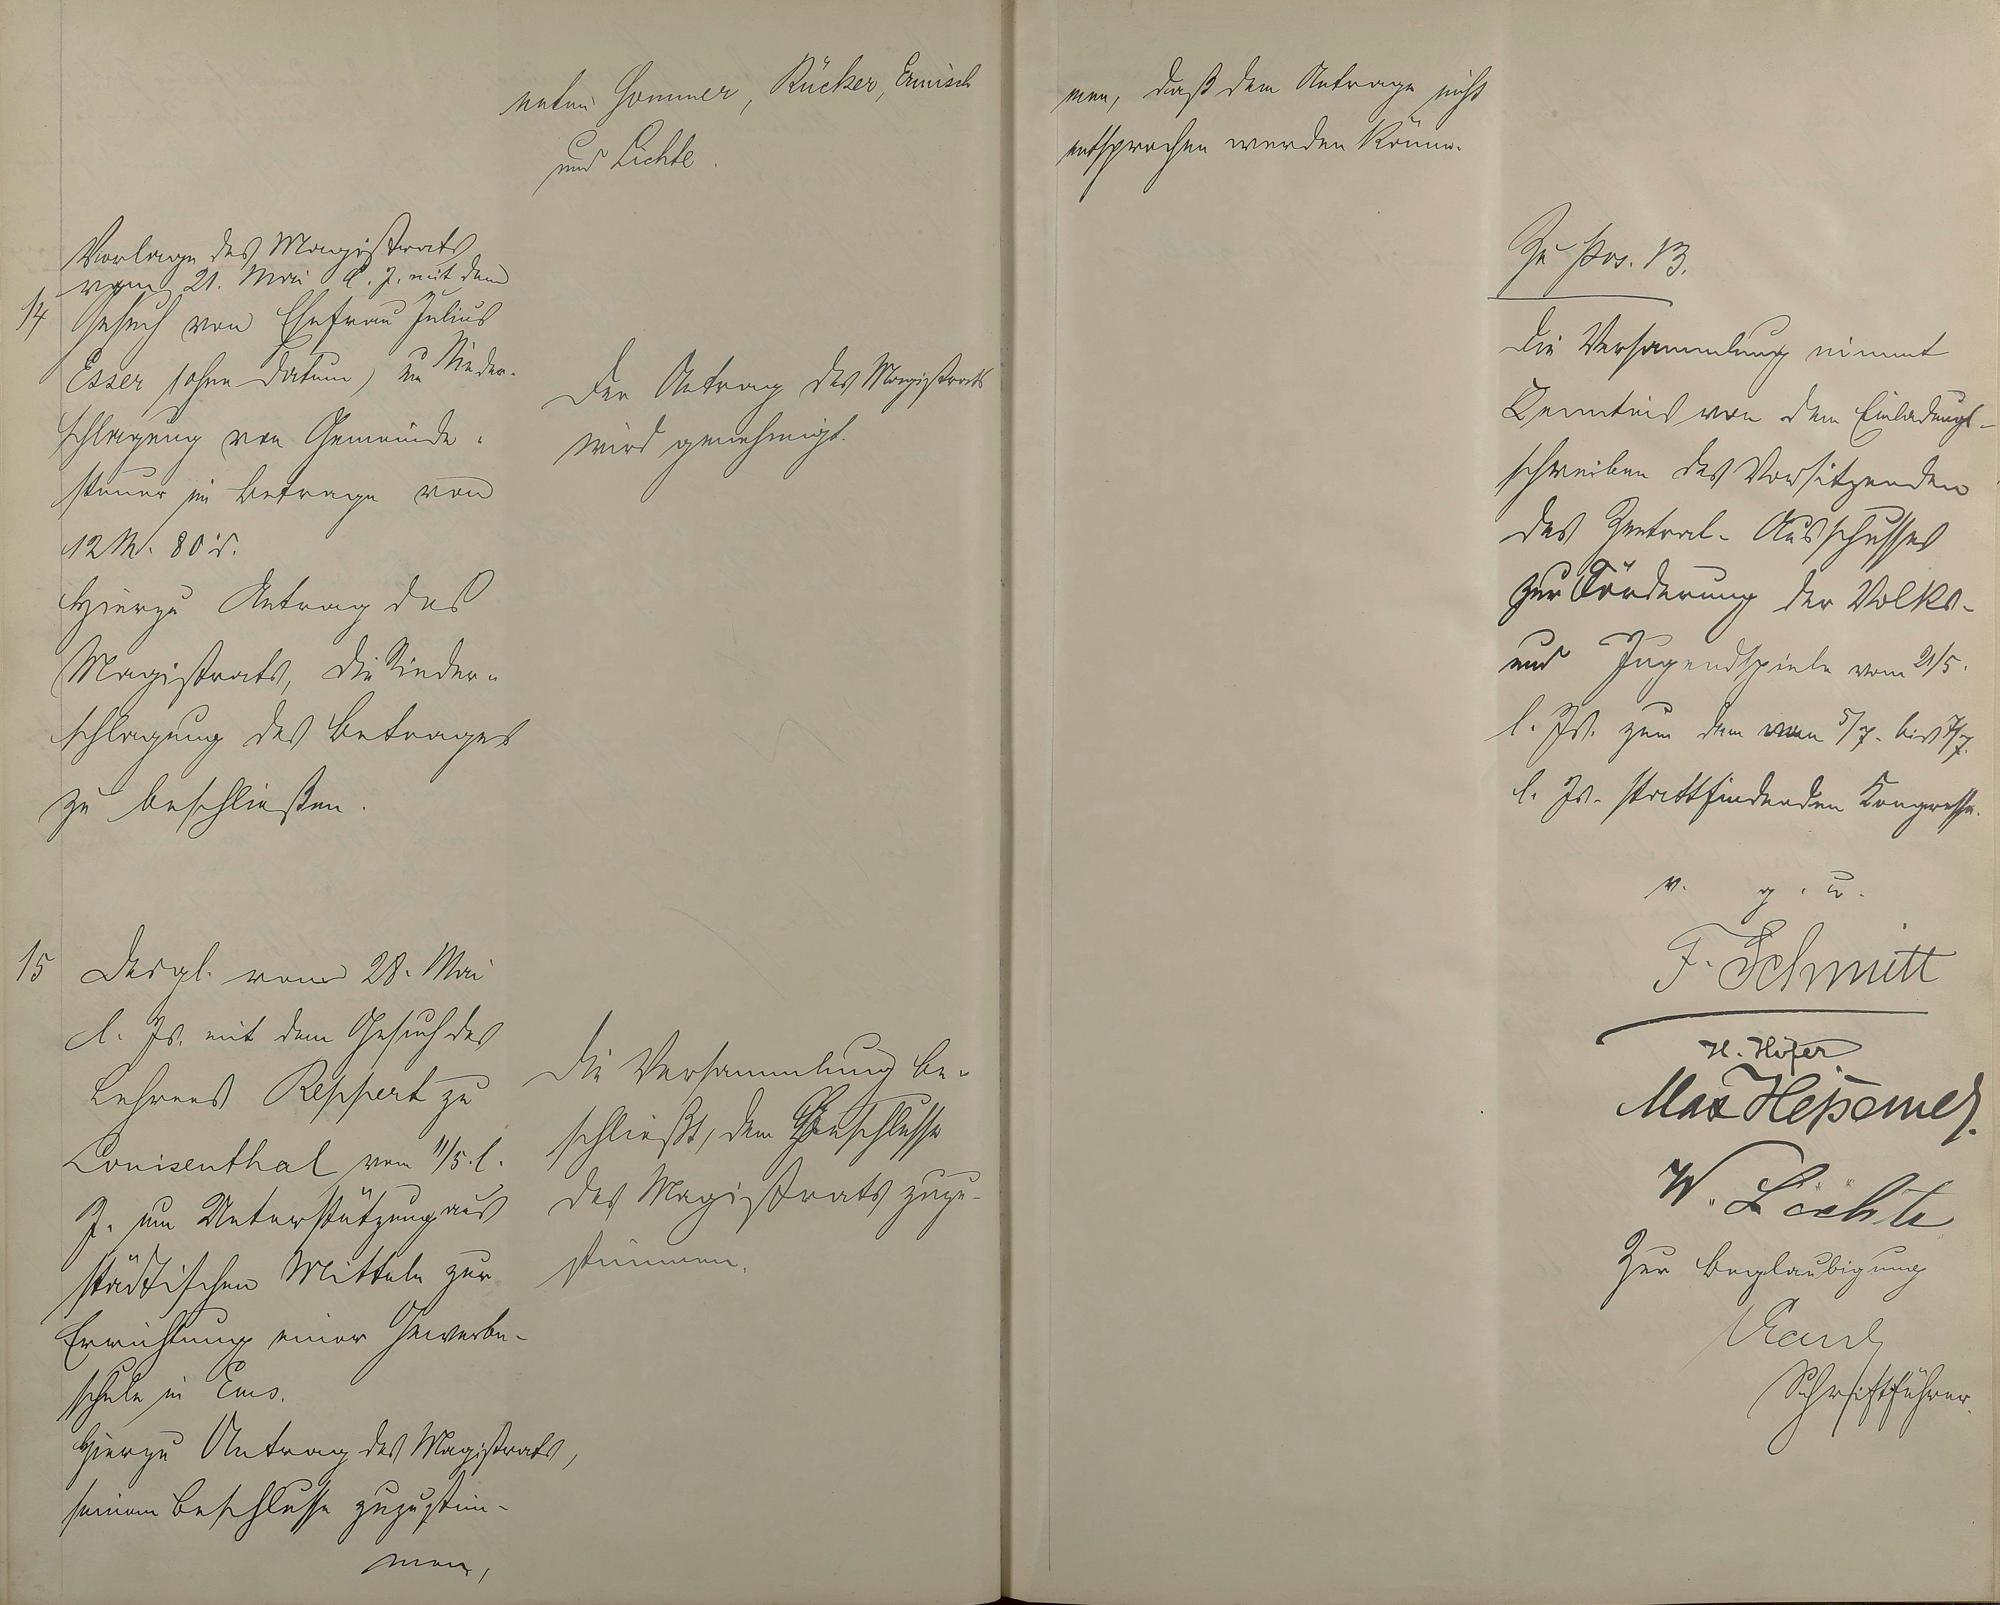 neten Sommer, Rücker, Ermisch
und Lichte.
Vorlage des Magistrats
vom 21. Mai l. J. mit dem
14 Gesuch von Ehefrau Julius
Esser (ohne Datum) um Nieder-
schlagung von Gemeinde-
steuer im Betrage von
12 M. 80 d.
Hierzu Antrag des
Magistrats, die Nieder-
schlagung des Betrages
zu beschließen.
Der Antrag des Magistrats
wird genehmigt.
15 Desgl. vom 28. Mai
l. Js. mit dem Gesuch des
Lehrers Reppert zu
Louisenthal vom 11/5. l.
J. um Unterstützung aus
städtischen Mitteln zur
Errichtung einer Gewerbe-
schule in Ems.
Hierzu Antrag des Magistrats,
seinem Beschlusse zuzustim-
men,
Die Versammlung be-
schließt, dem Beschlusse
des Magistrats zuzu-
stimmen.
men, daß dem Antrage nicht
entsprochen werden könne.
Zu Pos. 13.
Die Versammlung nimmt
Kenntnis von dem Einladungs-
schreiben des Vorsitzenden
des Zentral-Ausschusses
zur Förderung der Volks-
und Jugendspiele vom 21/5.
l. Js. zum dem vom 5/7. bis 7/7.
l. Js. stattfindenden Kongresse.
v. g. u.
F. Schmitt
H. Höfer
Max Heßemer.
W. Lichte
Zur Beglaubigung
Schriftführer.